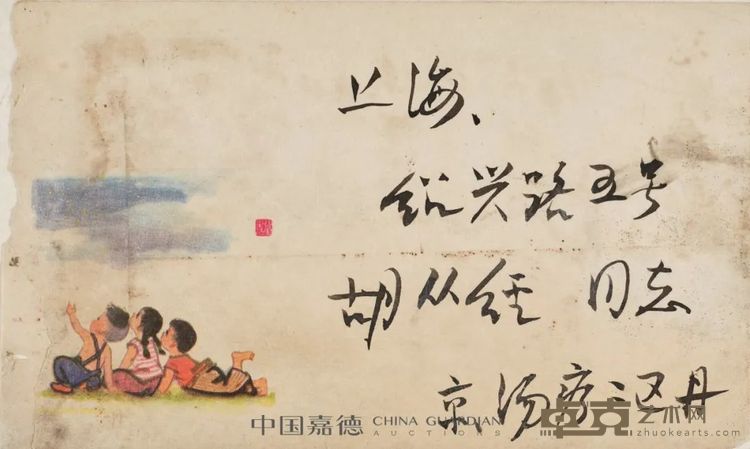 上海、
绍兴路五号
胡从经 同志
京汤疗二区丹
中国嘉德 CHINA GUARDIAN
AUCTIONS
卓克艺术网
zhuokearts.com